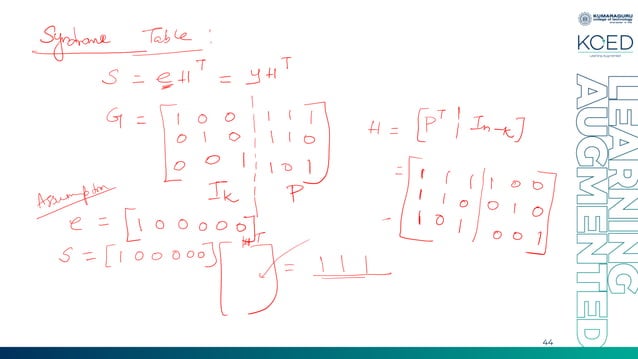 Syndrome Table :
S = e H^T = y H^T
G = [ 1 0 0 1 1 1
0 1 0 1 1 0
0 0 1 1 0 1 ]
I_k P
Assumption
e = [ 1 0 0 0 0 0 ]
S = [ 1 0 0 0 0 0 ] [ ] H^T = 1 1 1
H = [ P^T | I_n-k ]
= [ 1 1 1 1 0 0
1 1 0 0 1 0
1 0 1 0 0 1 ]
KUMARAGURU
college of technology
KCED
Learning Augmented
LEARNING
AUGMENTED
44